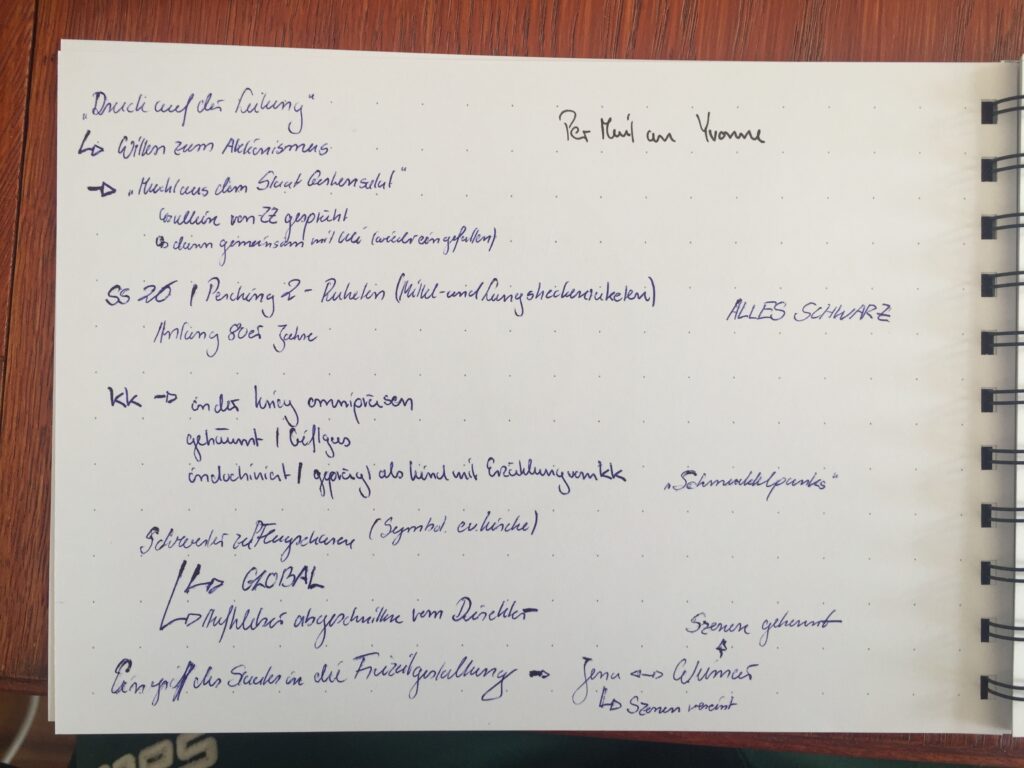 „Druck auf der Leitung"
↳ Willen zum Aktionismus
Per Mail an Yvonne
→ „Macht aus dem Staat Gurkensalat"
↳ alleine von ZZ gesprüht
↳ dann gemeinsam mit (wieder eingefallen)
SS 20 / Pershing 2 - Raketen (Mittel- und Langstreckenraketen)
ALLES SCHWARZ
Anfang 80er Jahre
KK → in der Krieg omnipräsen
geträumt / Giftgas
indoktriniert / geprägt als Kind mit Erzählung vom KK
„Schmuddelpunks"
Schwerter zu Pflugscharen (Symbol. )
↳ GLOBAL
↳ Aufkleber abgeschnitten vom Direktor
Szenen getrennt
Eingriff des Staates in die Freizeitgestaltung → Jena ↔ Weimar
↳ Szenen vereint